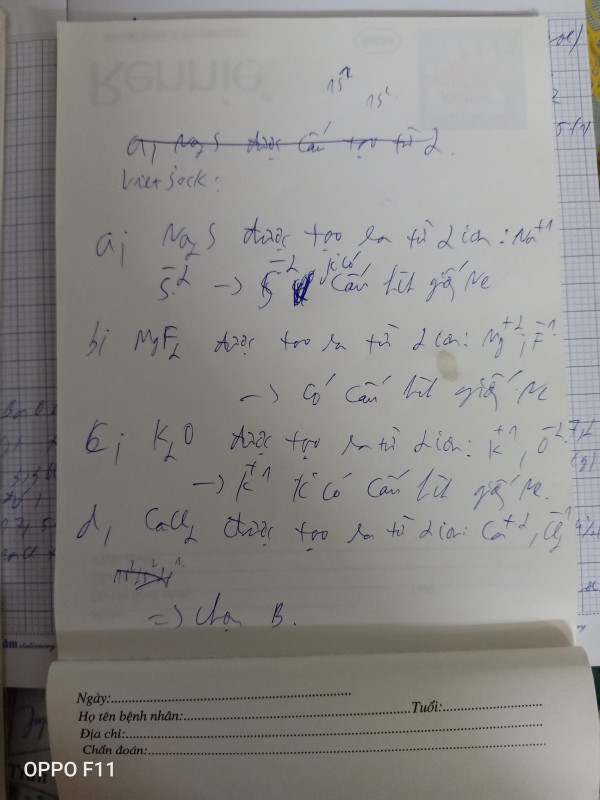 Rennie
1s² 1s²
a; Na₂S được cấu tạo từ 2.
Vietjack:
a; Na₂S được tạo ra từ 2 ion: Na⁺¹
S⁻² → S⁻² k có cấu hình giống Ne
b; MgF₂ được tạo ra từ 2 ion: Mg⁺²; F⁻¹
→ có cấu hình giống Ne
c; K₂O được tạo ra từ 2 ion: K⁺¹, O⁻²
→ K⁺¹ k có cấu hình giống Ne.
d, CaCl₂ được tạo ra từ 2 ion: Ca⁺², Cl₂⁻¹
=> chọn B.
ăm stationery
Ngày:
Họ tên bệnh nhân: Tuổi:
Địa chỉ:
Chẩn đoán:
OPPO F11